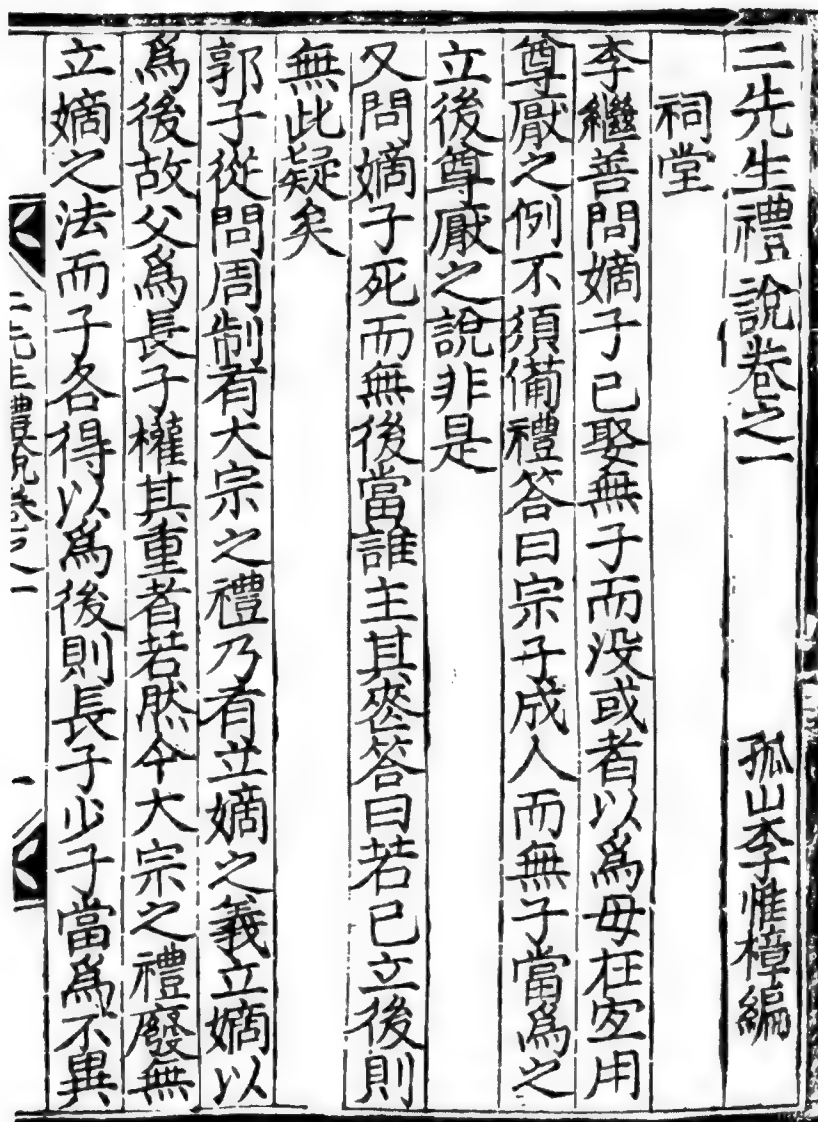 二先生禮說卷之一 孤山李惟樟編
祠堂
李繼善問嫡子已娶無子而没或者以爲母在宜用
尊厭之例不須備禮答曰宗子成人而無子當爲之
立後尊厭之說非是
又問嫡子死而無後當誰主其喪答曰若已立後則
無此疑矣
郭子從問周制有大宗之禮乃有立嫡之義立嫡以
爲後故父爲長子權其重者若然今大宗之禮廢無
立嫡之法而子各得以爲後則長子少子當爲不異
二先生禮說卷之一 一